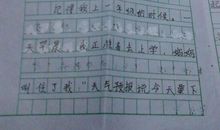 记得我上一年级的时候，一
天早晨，我正准备去上学，妈妈
叫住了我"天气预报说今天要下